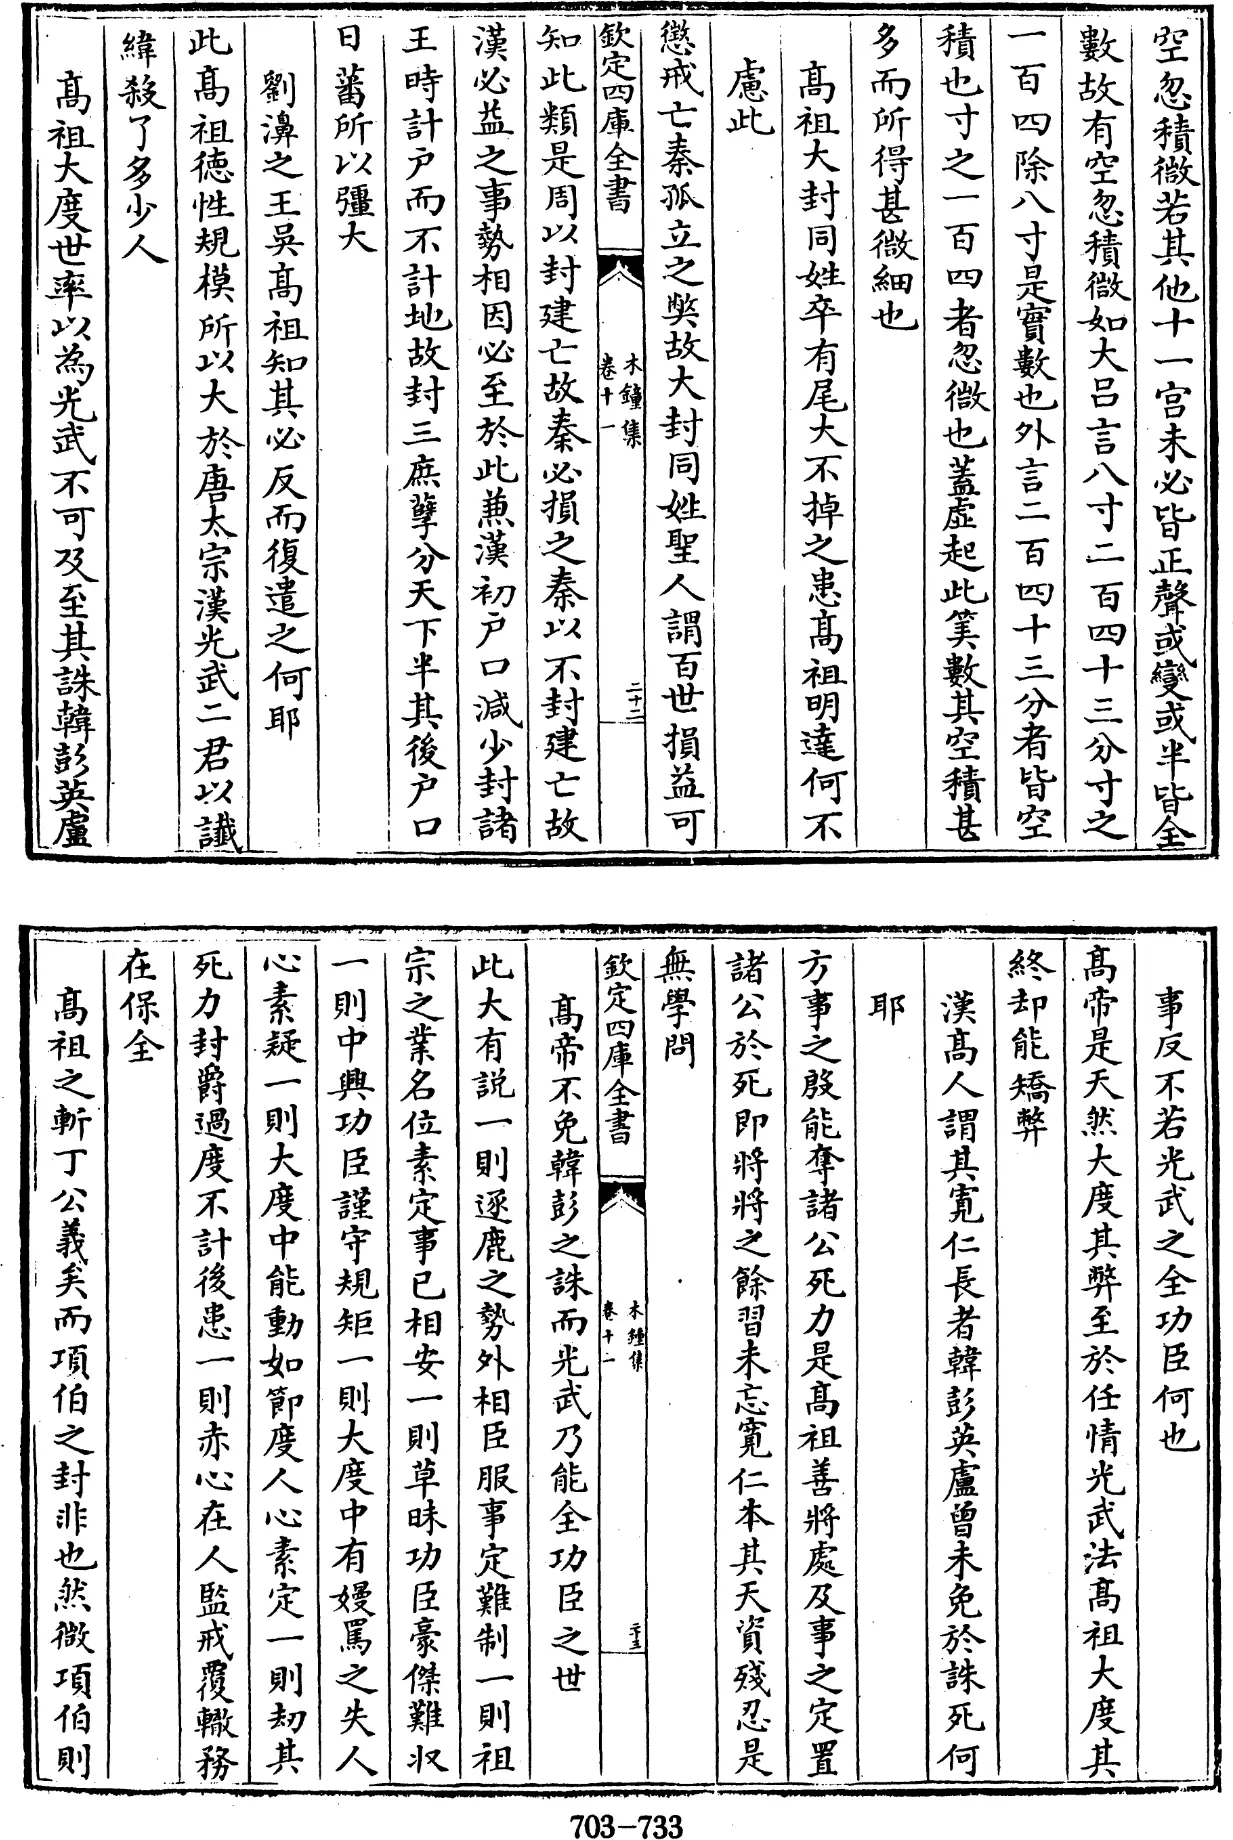 空忽積微若其他十一宫未必皆正聲或變或半皆全
數故有空忽積微如大吕言八寸二百四十三分寸之
一百四除八寸是實數也外言二百四十三分者皆空
積也寸之一百四者忽微也蓋虛起此筭數其空積甚
多而所得甚微細也
高祖大封同姓卒有尾大不掉之患髙祖明達何不
慮此
懲戒亡秦孤立之弊故大封同姓聖人謂百世損益可
欽定四庫全書
木鐘集
卷十一
二十二
知此類是周以封建亡故秦必損之秦以不封建亡故
漢必益之事勢相因必至於此兼漢初户口減少封諸
王時計户而不計地故封三庶孽分天下半其後户口
日蕃所以彊大
劉濞之王吳髙祖知其必反而復遣之何耶
此髙祖徳性規模所以大於唐太宗漢光武二君以讖
緯殺了多少人
髙祖大度世率以為光武不可及至其誅韓彭英盧
事反不若光武之全功臣何也
髙帝是天然大度其弊至於任情光武法髙祖大度其
終却能矯弊
漢髙人謂其寛仁長者韓彭英盧曾未免於誅死何
耶
方事之殷能奪諸公死力是髙祖善將處及事之定置
諸公於死即將將之餘習未忘寛仁本其天資殘忍是
無學問
欽定四庫全書
木鐘集
卷十一
二十三
髙帝不免韓彭之誅而光武乃能全功臣之世
此大有説一則逐鹿之勢外相臣服事定難制一則祖
宗之業名位素定事已相安一則草昧功臣豪傑難収
一則中興功臣謹守規矩一則大度中有嫚罵之失人
心素疑一則大度中能動如節度人心素定一則劫其
死力封爵過度不計後患一則赤心在人監戒覆轍務
在保全
髙祖之斬丁公義矣而項伯之封非也然微項伯則
703-733